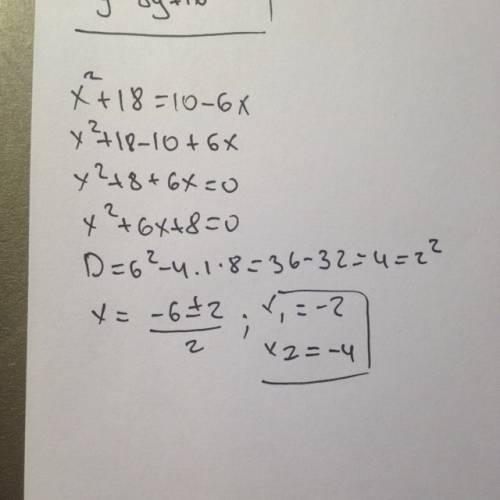 x² + 18 = 10 - 6x
x² + 18 - 10 + 6x
x² + 8 + 6x = 0
x² + 6x + 8 = 0
D = 6² - 4 · 1 · 8 = 36 - 32 = 4 = 2²
x = \frac{-6 ± 2}{2} ; x₁ = -2
x2 = -4